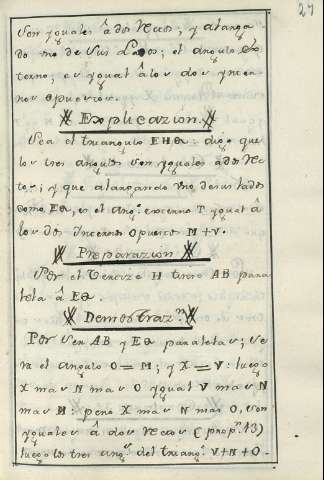 27
son yguales â dos rectos; y alarga
do uno de sus Lados; el angulo Ex
terno; es ygual â los dos ynter
nos opuestos.
Explicazion.
Sea el triangulo EHQ: digo que
los tres angulos son yguales â dos Rec
tos; y que alargando uno de sus lados
como EQ, es el ang.º externo T ygual â
los dos Internos opuestos M+V.
Preparazion
Por el Vertize H tirese AB para
lela â EQ
Demostraz.n
Por ser AB y EQ paralelas; se
ra el angulo O=M; y X=V: luego
X mas N mas O ygual V mas N
mas M: pero X mas N mas O, son
yguales â dos rectos (prop.n 13)
luego los tres ang.s del triang.º V+N+O.